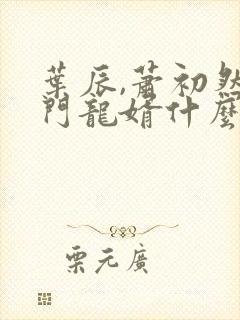 葉辰,蕭初然
門龍婿什麼
栗元廣